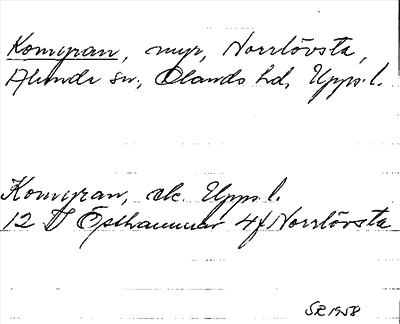 Komyran, myr, Norrlövsta,
Alunda sn, Olands hd, Upps. l.
Komyran, ek. Upps l.
12 I Östhammar 4f Norrlövsta
SR 1958